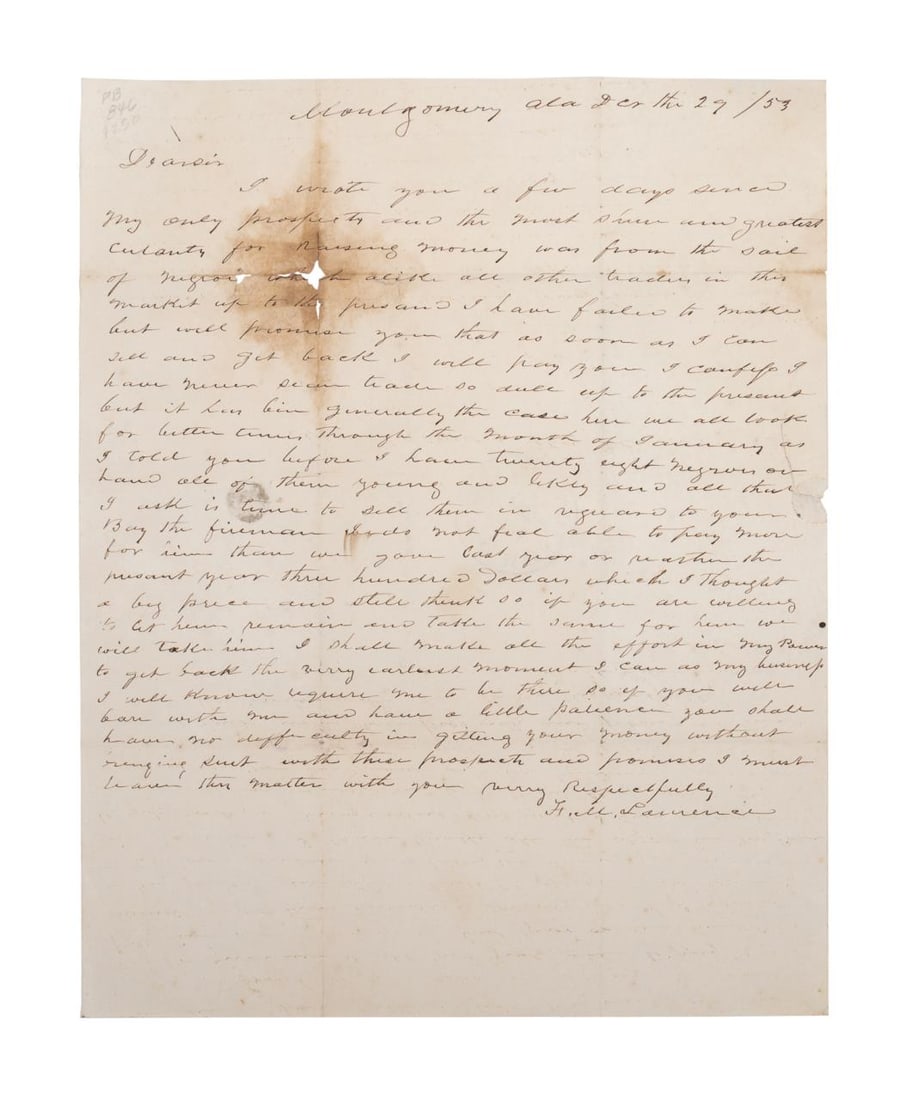 PB
846
Montgomery Ala Dcr the 29 /53
Dearsir
I wrote you a few days since
My only prospects and the most shure and greatest
for Raising money was from the sail
of negrois which alike all other traders in this
market up to the presand I have failed to make
but will promise you that as soon as I can
sell and get back I will pay you I confess I
have never seen trade so dull up to the presant
but it has bin generally the case here we all look
for better times through the month of January as
I told you before I have twenty eight negrois on
hand all of them young and likly and all that
I ask is time to sell them in reguard to your
Boy the fireman I do not feal able to pay more
for him than we gave last year or reather the
presant year three hundred Dollars which I thought
a big price and still think so if you are willing
to let him remain and take the same for him we
will take him I shall make all the effort in my Power
to get back the verry earliest moment I can as my business
I will know require me to be there so if you will
bare with me and have a little patience you shall
have no diffeculty in gitting your money without
suit with these prospects and promises I must
leave this matter with you verry Respectfully
F. M. Lawrence